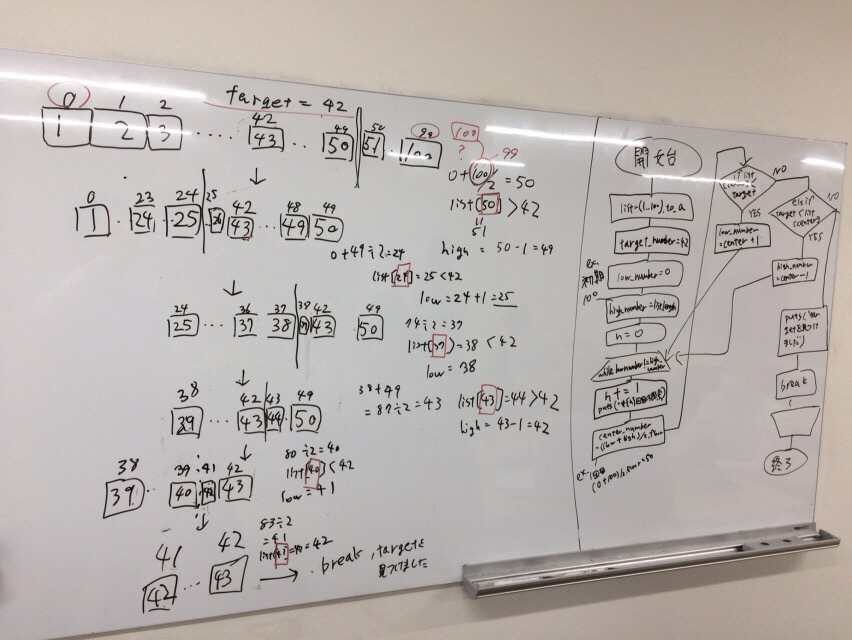 target = 42
0 1 2 42 49 50 99
1 2 3 .... 43 .. 50 51 . 100
100
?
99
0+100/2 = 50
list(50) > 42
51
high = 50-1 = 49
0 23 24 25 42 48 49
1 . 24 . 25 26 43 .. 49 50
0+49÷2=24
list(24)=25<42
low = 24+1=25
24 36 37 38 42 49
25 ... 37 38 39 43 50
74÷2=37
list(37)=38 < 42
low = 38
38 42 43 49
39 ... 43 44 . 50
38+49
= 87÷2=43
list(43)=44>42
high = 43-1=42
38 39 . 41 42
39 .. 40 43
80÷2=40
list(40) < 42
low = 41
41 42
42 ... 43
83÷2
=41
list(41)=42
break, targetを
見つけました
開始
list=(1..100).to_a
target_number=42
ex.
初期
100
low_number=0
high_number=list.length
n=0
while low_number!=high_number
n+=1
center_number
ex. 1回目
if list
target
NO
YES
low_number
=center+1
Else if
target < list
(center)
NO
YES
high_number
=center-1
puts('tar
get を見つけ
ました')
break
終了